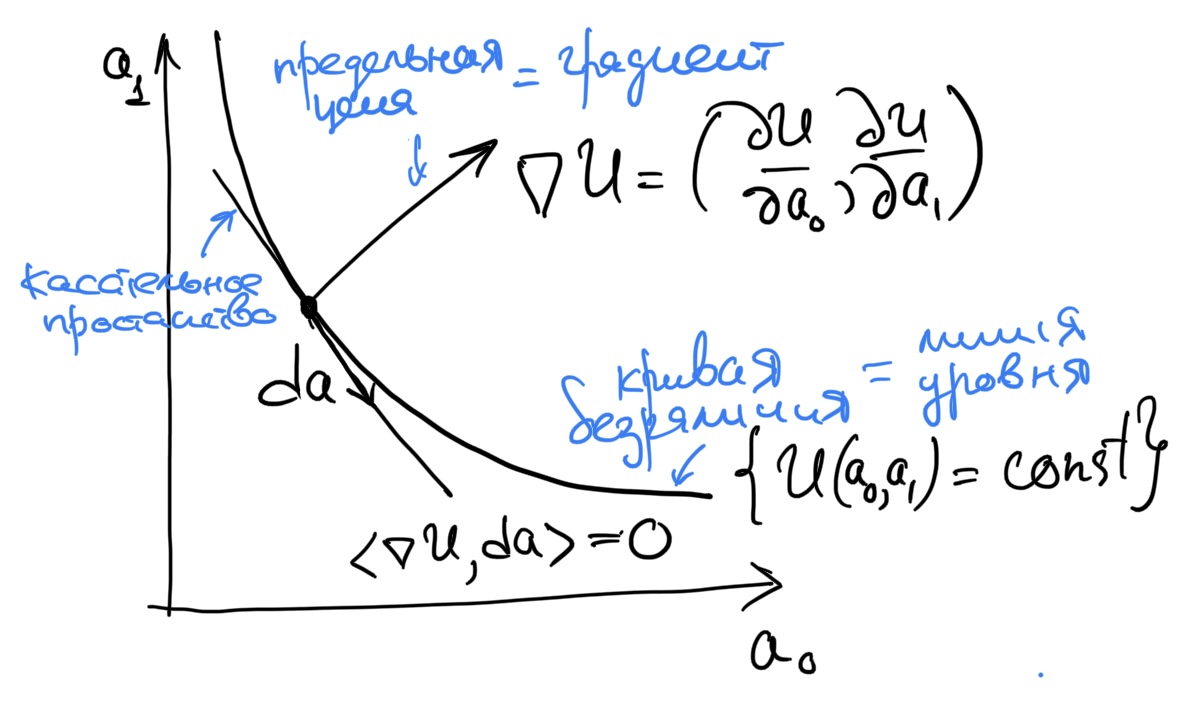 a₁
предельная = градиент
цена
∇U = (∂U/∂a₀, ∂U/∂a₁)
касательное
простанство
da
кривая = линия
безразличия уровня
{U(a₀,a₁) = const}
<∇U, da> = 0
a₀